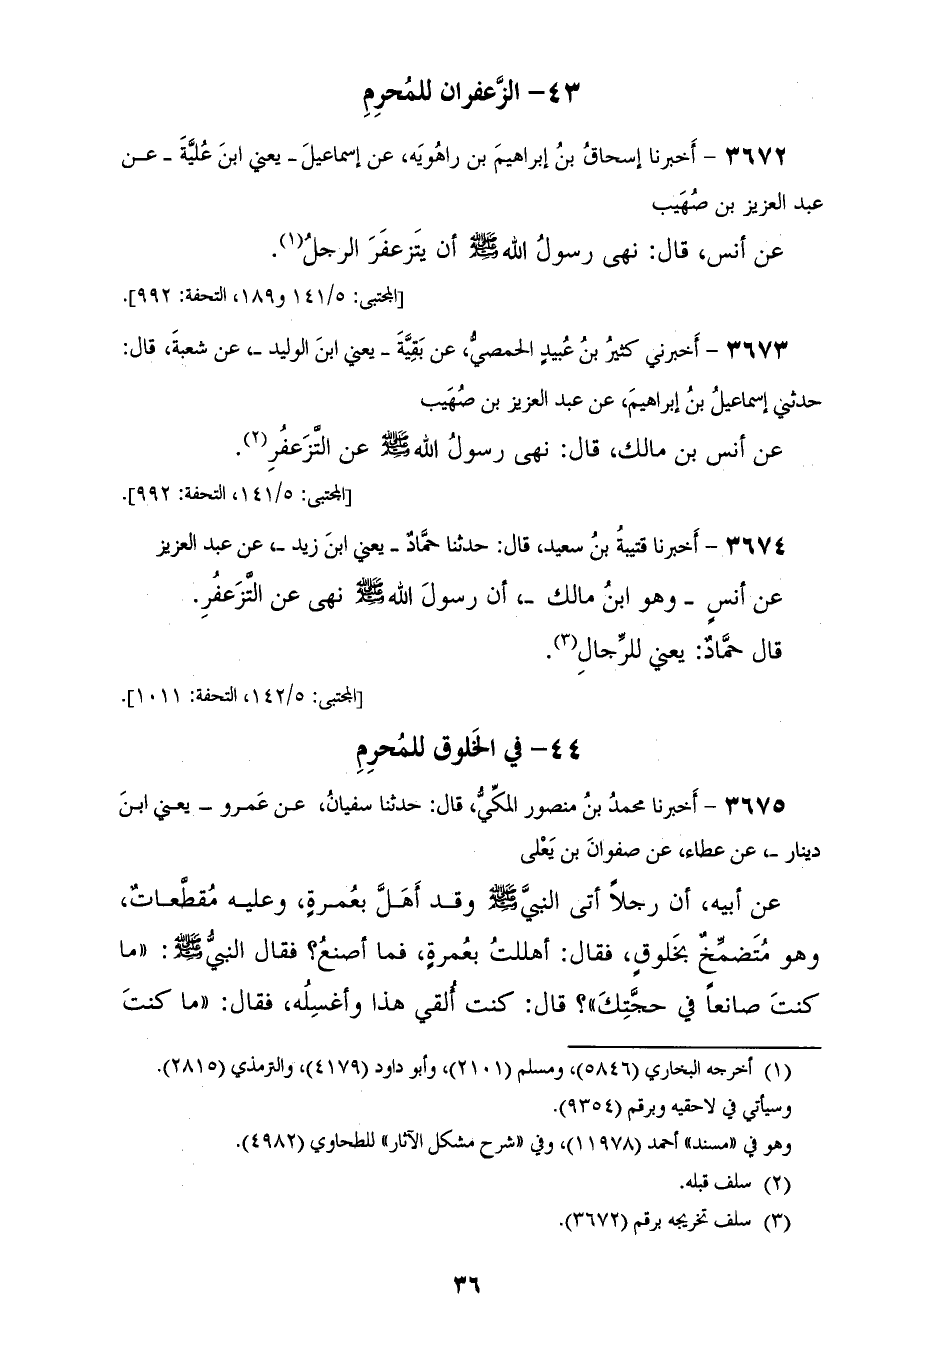 ٤٣- الزَّعفران للمُحرِمِ
٣٦٧٢ - أَخبرنا إسحاقُ بنُ إبراهيمَ بن راهُويَه، عن إسماعيلَ ـ يعني ابنَ عُليَّةَ ـ عـن
عبد العزيز بن صُهَيب
عن أنس، قال: نهى رسولُ الله ﷺ أن يَتَزعفَرَ الرجلُ(١).
[المجتبى: ١٤١/٥ و١٨٩، التحفة: ٩٩٢].
٣٦٧٣ - أَخبرني كثيرُ بنُ عُبيدٍ الحمصيُّ، عن بَقِيَّةَ ـ يعني ابنَ الوليد ـ، عن شعبةَ، قال:
حدثني إسماعيلُ بنُ إبراهيمَ، عن عبد العزيز بن صُهَيب
عن أنس بن مالك، قال: نهى رسولُ الله ﷺ عن التَّزَعفُرِ(٢).
[المجتبى: ١٤١/٥، التحفة: ٩٩٢].
٣٦٧٤ - أَخبرنا قتيبةُ بنُ سعيد، قال: حدثنا حمَّادٌ ـ يعني ابنَ زيد ـ، عن عبد العزيز
عن أنسٍ ـ وهو ابنُ مالك ـ، أن رسولَ الله ﷺ نهى عن التَّزَعفُرِ.
قال حمَّادٌ: يعني للرِّجالِ(٣).
[المجتبى: ١٤٢/٥، التحفة: ١٠١١].
٤٤- في الخَلوق للمُحرِمِ
٣٦٧٥ - أَخبرنا محمدُ بنُ منصور المكِّيُّ، قال: حدثنا سفيانُ، عـن عَمـرو ـ يعـني ابـنَ
دينار ـ، عن عطاء، عن صفوانَ بن يَعْلى
عن أبيه، أن رجلاً أتى النبيَّ ﷺ وقـد أَهَـلَّ بعُمـرةٍ، وعليـه مُقطَّعـاتٌ،
وهو مُتَضمِّخٌ بخَلوقٍ، فقال: أهللتُ بعُمرةٍ، فما أصنعُ؟ فقال النبيُّ ﷺ: «ما
كنتَ صانعاً في حجَّتِكَ»؟ قال: كنت أُلقي هذا وأغسِلُه، فقال: «ما كنتَ
(١) أخرجه البخاري (٥٨٤٦)، ومسلم (٢١٠١)، وأبو داود (٤١٧٩)، والترمذي (٢٨١٥).
وسيأتي في لاحقيه وبرقم (٩٣٥٤).
وهو في «مسند» أحمد (١١٩٧٨)، وفي «شرح مشكل الآثار» للطحاوي (٤٩٨٢).
(٢) سلف قبله.
(٣) سلف تخريجه برقم (٣٦٧٢).
٣٦